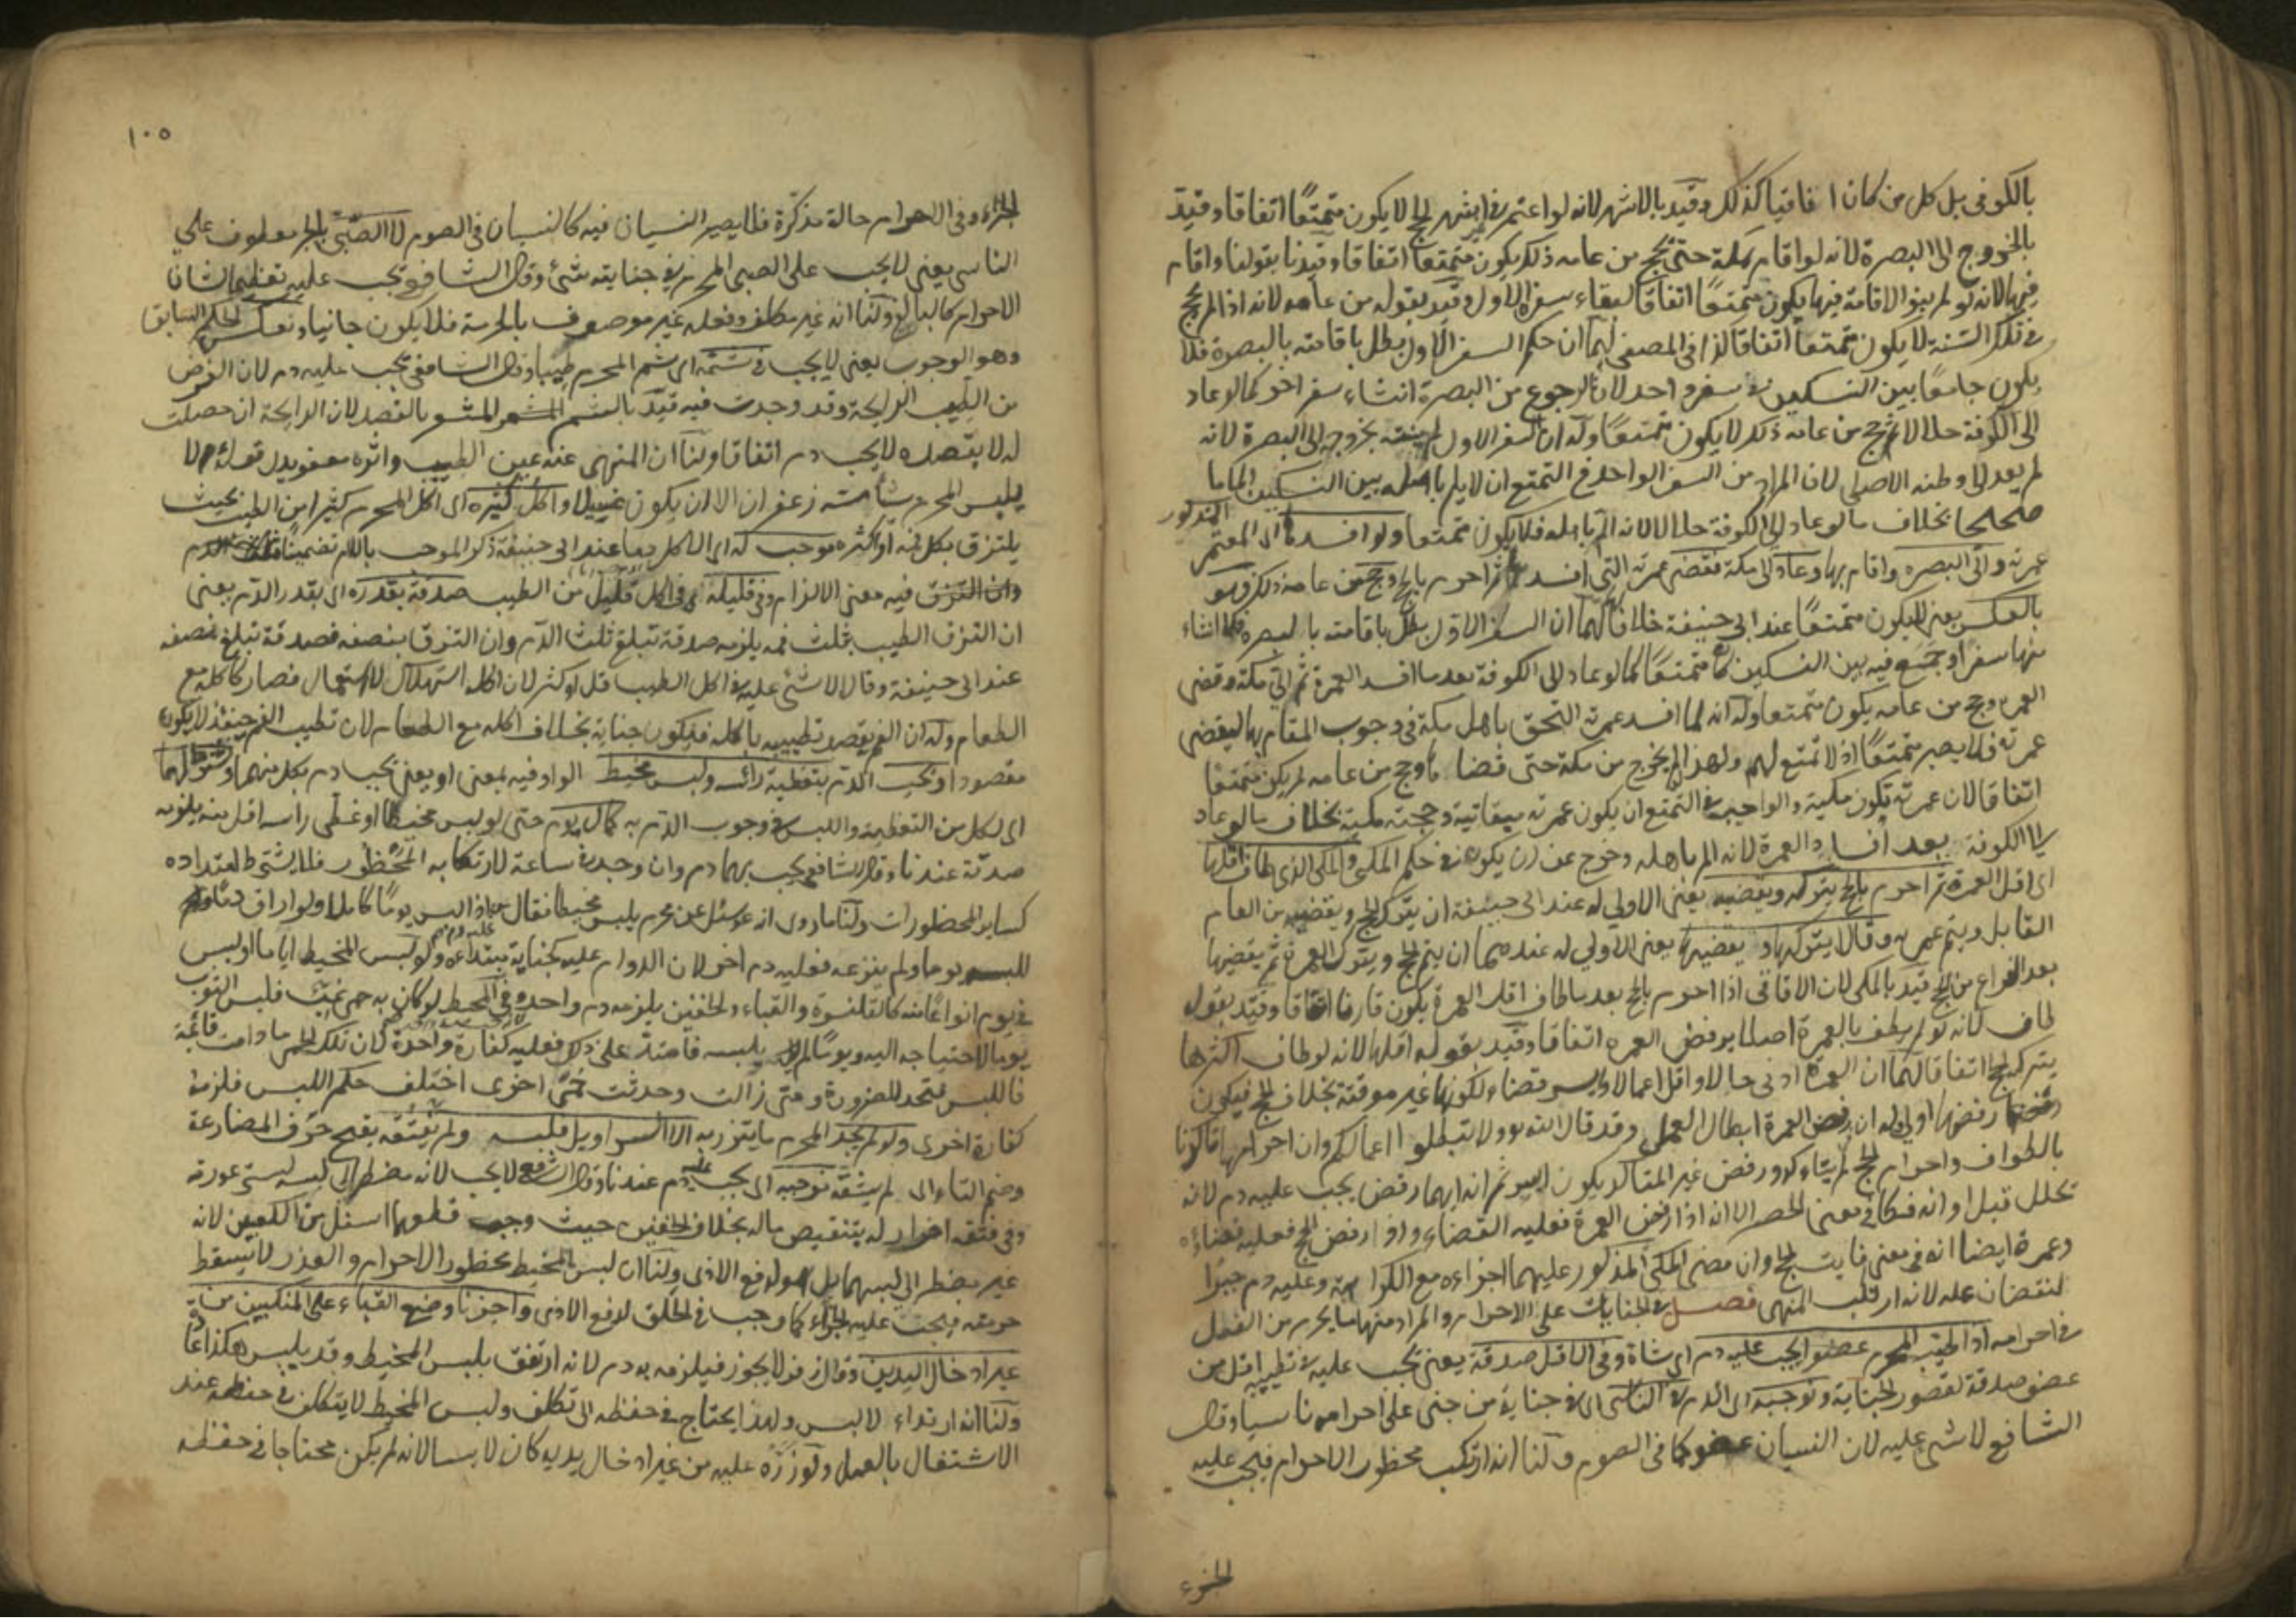 بالكوفى بل كل من كان افاقيا كذلك وقيد بالاشهر لانه لو اعتمر فى غير اشهر الحج لا يكون متمتعًا اتفاقا وقيد
بالخروج الى البصرة لانه لو اقام بمكة حتى يحج من عامه ذلك يكون متمتعًا اتفاقا وقيدنا بقولنا واقام
فيها لانه لو لم ينو الاقامة فيها يكون متمتعًا اتفاقا لبقاء سفره الاول وقيد بقوله من عامه لانه اذا لم يحج
فى تلك السنة لا يكون متمتعا اتفاقا كذا فى المصفى لهما ان حكم السفر الاول بطل باقامته بالبصرة فلا
يكون جامعًا بين النسكين فى سفر واحد لان الرجوع من البصرة انشاء سفر اخر كما لو عاد
الى الكوفة حلالا ثم حج من عامه ذلك لا يكون متمتعًا وله ان السفر الاول لم ينته بخروجه الى البصرة لانه
لم يعد الى وطنه الاصلى لان المراد من السفر الواحد فى التمتع ان لا يلم باهله بين النسكين الماما
صحيحا بخلاف ما لو عاد الى الكوفة حلالا لانه الم باهله فلا يكون متمتعا ولو افسد ها اى المعتمر المذكور
عمرته واتى البصره واقام بها وعاد الى مكة فقضى عمرته التى افسدها ثم احرم بالحج وحج من عامه ذلك فهو
بالعكس يعنى لا يكون متمتعًا عند ابى حنيفة خلافا لهما لهما ان السفر الاول بطل باقامته بالبصره فلما انشاء
منها سفرا وجمع فيه بين النسكين كان متمتعًا كما لو عاد الى الكوفة بعد ما افسد العمرة ثم اتى مكة وقضى
العمرة وحج من عامه يكون متمتعا وله انه لما افسد عمرته التحق باهل مكة فى وجوب المقام بها ليقضى
عمرته فلا يصير متمتعًا اذ لا تمتع لهم ولهذا لو لم يخرج من مكة حتى قضا ها وحج من عامه لم يكن متمتعا
اتفاقا لان عمرته تكون مكية والواجب فى التمتع ان يكون عمرته ميقاتية وحجته مكية بخلاف ما لو عاد
الى الكوفة بعد افساد العمرة لانه الم باهله وخرج عن ان يكون فى حكم المكى والمكى الذى طاف اقلها
اى اقل العمرة ثم احرم بالحج يتركه ويقضيه يعنى الاولى له عند ابى حنيفة ان يترك الحج ويقضيه من العام
القابل ويتم عمرته وقالا يتركها ويقضيها يعنى الاولى له عندهما ان يتم الحج ويترك العمرة ثم يقضيها
بعد الفراغ من الحج قيد بالمكى لان الافاقى اذا احرم بالحج بعد ما طاف اقل العمرة يكون قارنا اتفاقا وقيد بقوله
طاف لانه لو لم يطف بالعمرة اصلا يرفض العمره اتفاقا وقيد بقوله اقلها لانه لو طاف اكثرها
يترك الحج اتفاقا لهما ان العمرة ادنى حالا واقل اعمالا وايسر قضاء لكونها غير موقتة بخلاف الحج فيكون
رفضها اولى وله ان رفض العمرة ابطال العمل وقد قال الله تعالى ولا تبطلوا اعمالكم وان احرامها تاكد
بالطواف واحرام الحج لم يتاكد ورفض غير المتاكد يكون ايسر ثم انه ايهما رفض يجب عليه دم لانه
تحلل قبل اوانه فكان فى معنى المحصر الا انه اذا رفض العمرة فعليه القضاء واذا رفض الحج فعليه قضاءه
وعمرة ايضا لانه فى معنى فايت الحج وان مضى المكى المذكور عليهما اجزاءه مع الكراهية وعليه دم جبرًا
لنقصان عمله لانه ارتكب المنهى فصل فى الجنايات على الاحرام والمراد منها ما يحرم من الفعل
فى احرامه اذا طيب المحرم عضوا يجب عليه دم اى شاة وفى الاقل صدقة يعنى يجب عليه فى تطييبه اقل من
عضو صدقة لقصور الجناية ونوجبه اى الدم فى الناسى اى فى جناية من جنى على احرامه ناسيا وقال
الشافعى لا شئ عليه لان النسيان عفو كما فى الصوم ولنا انه ارتكب محظور الاحرام فيجب عليه
الجزء
١٠٥
الجزاء وفى الاحرام حالة مذكرة فلا يصير النسيان فيه كالنسيان فى الصوم لا الصبى بالجر معطوف على
الناسى يعنى لا يجب على الصبى المحرم فى جنايته شئ وقال الشافعى يجب عليه تعظيما لشان
الاحرام كالبالغ ولنا انه غير مكلف وفعله غير موصوف بالحرمة فلا يكون جانيا ونعكس الحكم السابق
وهو الوجوب يعنى لا يجب فى شمه اى شم المحرم طيبا وقال الشافعى يجب عليه دم لان الغرض
من الطيب الرايحة وقد وجدت فيه قيد بالشم المشعر بالقصد لان الرايحة ان حصلت
له لا بقصده لا يجب دم اتفاقا ولنا ان المنهى عنه عين الطيب واثره معفو بدليل قوله لا
يلبس المحرم ما مسه زعفران الا ان يكون غسيلا واكل كثيره اى اكل المحرم كثيرا من الطيب بحيث
يلتزق بكل فمه او اكثره موجب له اى للدم كل بها عند ابى حنيفة ذكر الموجب باللام تضمينا
وان التزق فيه معنى الالزام وفى قليله اى فى اكل قليل من الطيب صدقة بقدره اى بقدر الدم يعنى
ان التزق الطيب بثلث فمه يلزمه صدقة تبلغ ثلث الدم وان التزق بنصفه فصدقة تبلغ نصفه
عند ابى حنيفة وقالا لا شئ عليه فى اكل الطيب قل او كثر لان اكله استهلاك لا استعمال فصار كاكله مع
الطعام وله ان الفم يقصد تطييبه باكله فيكون جناية بخلاف اكله مع الطعام لان تطييب الفم حينئذ لا يكون
مقصودا ويجب الدم بتغطية راسه ولبس مخيط الواو فيه بمعنى او يعنى يجب دم بكل منهما وشرطوا لهما
اى لكل من التغطية واللبس فى وجوب الدم به كمال يوم حتى لو لبس مخيطا او غطى راسه اقل منه يلزمه
صدقة عندنا وقال الشافعى يجب بهما دم وان وجد فى ساعة لارتكابه المحظور فلا يشترط امتداده
كساير المحظورات ولنا ما روى انه عم سئل عن محرم يلبس مخيطا فقال اذا لبس يوما كاملا ولو اراق دما
للبسه يوما ولم ينزعه فعليه دم اخر لان الدوام عليه كجناية مبتداءة ولو لبس المخيط اياما او لبس
فى يوم انواعًا منه كالقلنسوة والقباء والخفين يلزمه دم واحد وفى المحيط لو كان به حمى غب فلبس الثوب
يوما لاحتياجه اليه ويوما لم يلبسه فامتد على ذلك فعليه كفارة واحدة لان تلك الحمى ما دامت قائمة
فاللبس متحد للضرورة ومتى زالت وحدثت حمى اخرى اختلف حكم اللبس فلزمه
كفارة اخرى ولو لم يجد المحرم ما يتزر به الا السراويل فلبسه ولم يفتقه بفتح حرف المضارعة
وضم التاء اى لم يشقه نوجبه اى يجب عليه دم عندنا وقال الشافعى لا يجب لانه مضطر الى لبسه لستر عورته
وفى فتقه اضرار له بتنقيص ماله بخلاف الخفين حيث وجب قطعهما اسفل من الكعبين لانه
غير مضطر الى لبسهما بل هو لدفع الاذى ولنا ان لبس المخيط محظور الاحرام والعذر لا يسقط
حرمته فيجب عليه الجزاء كما وجب فى الحلق لدفع الاذى واجزنا وضع القباء على المنكبين من
غير ادخال اليدين وقال زفر لا يجوز فيلزمه به دم لانه ارتفق بلبس المخيط وقد يلبس هكذا
ولنا انه ارتداء لا لبس ولهذا يحتاج فى حفظه الى تكلف ولبس المخيط لا يتكلف فى حفظه عند
الاشتغال بالعمل ولو زره عليه من غير ادخال يديه كان لابسا لانه لم يكن محتاجا فى حفظه